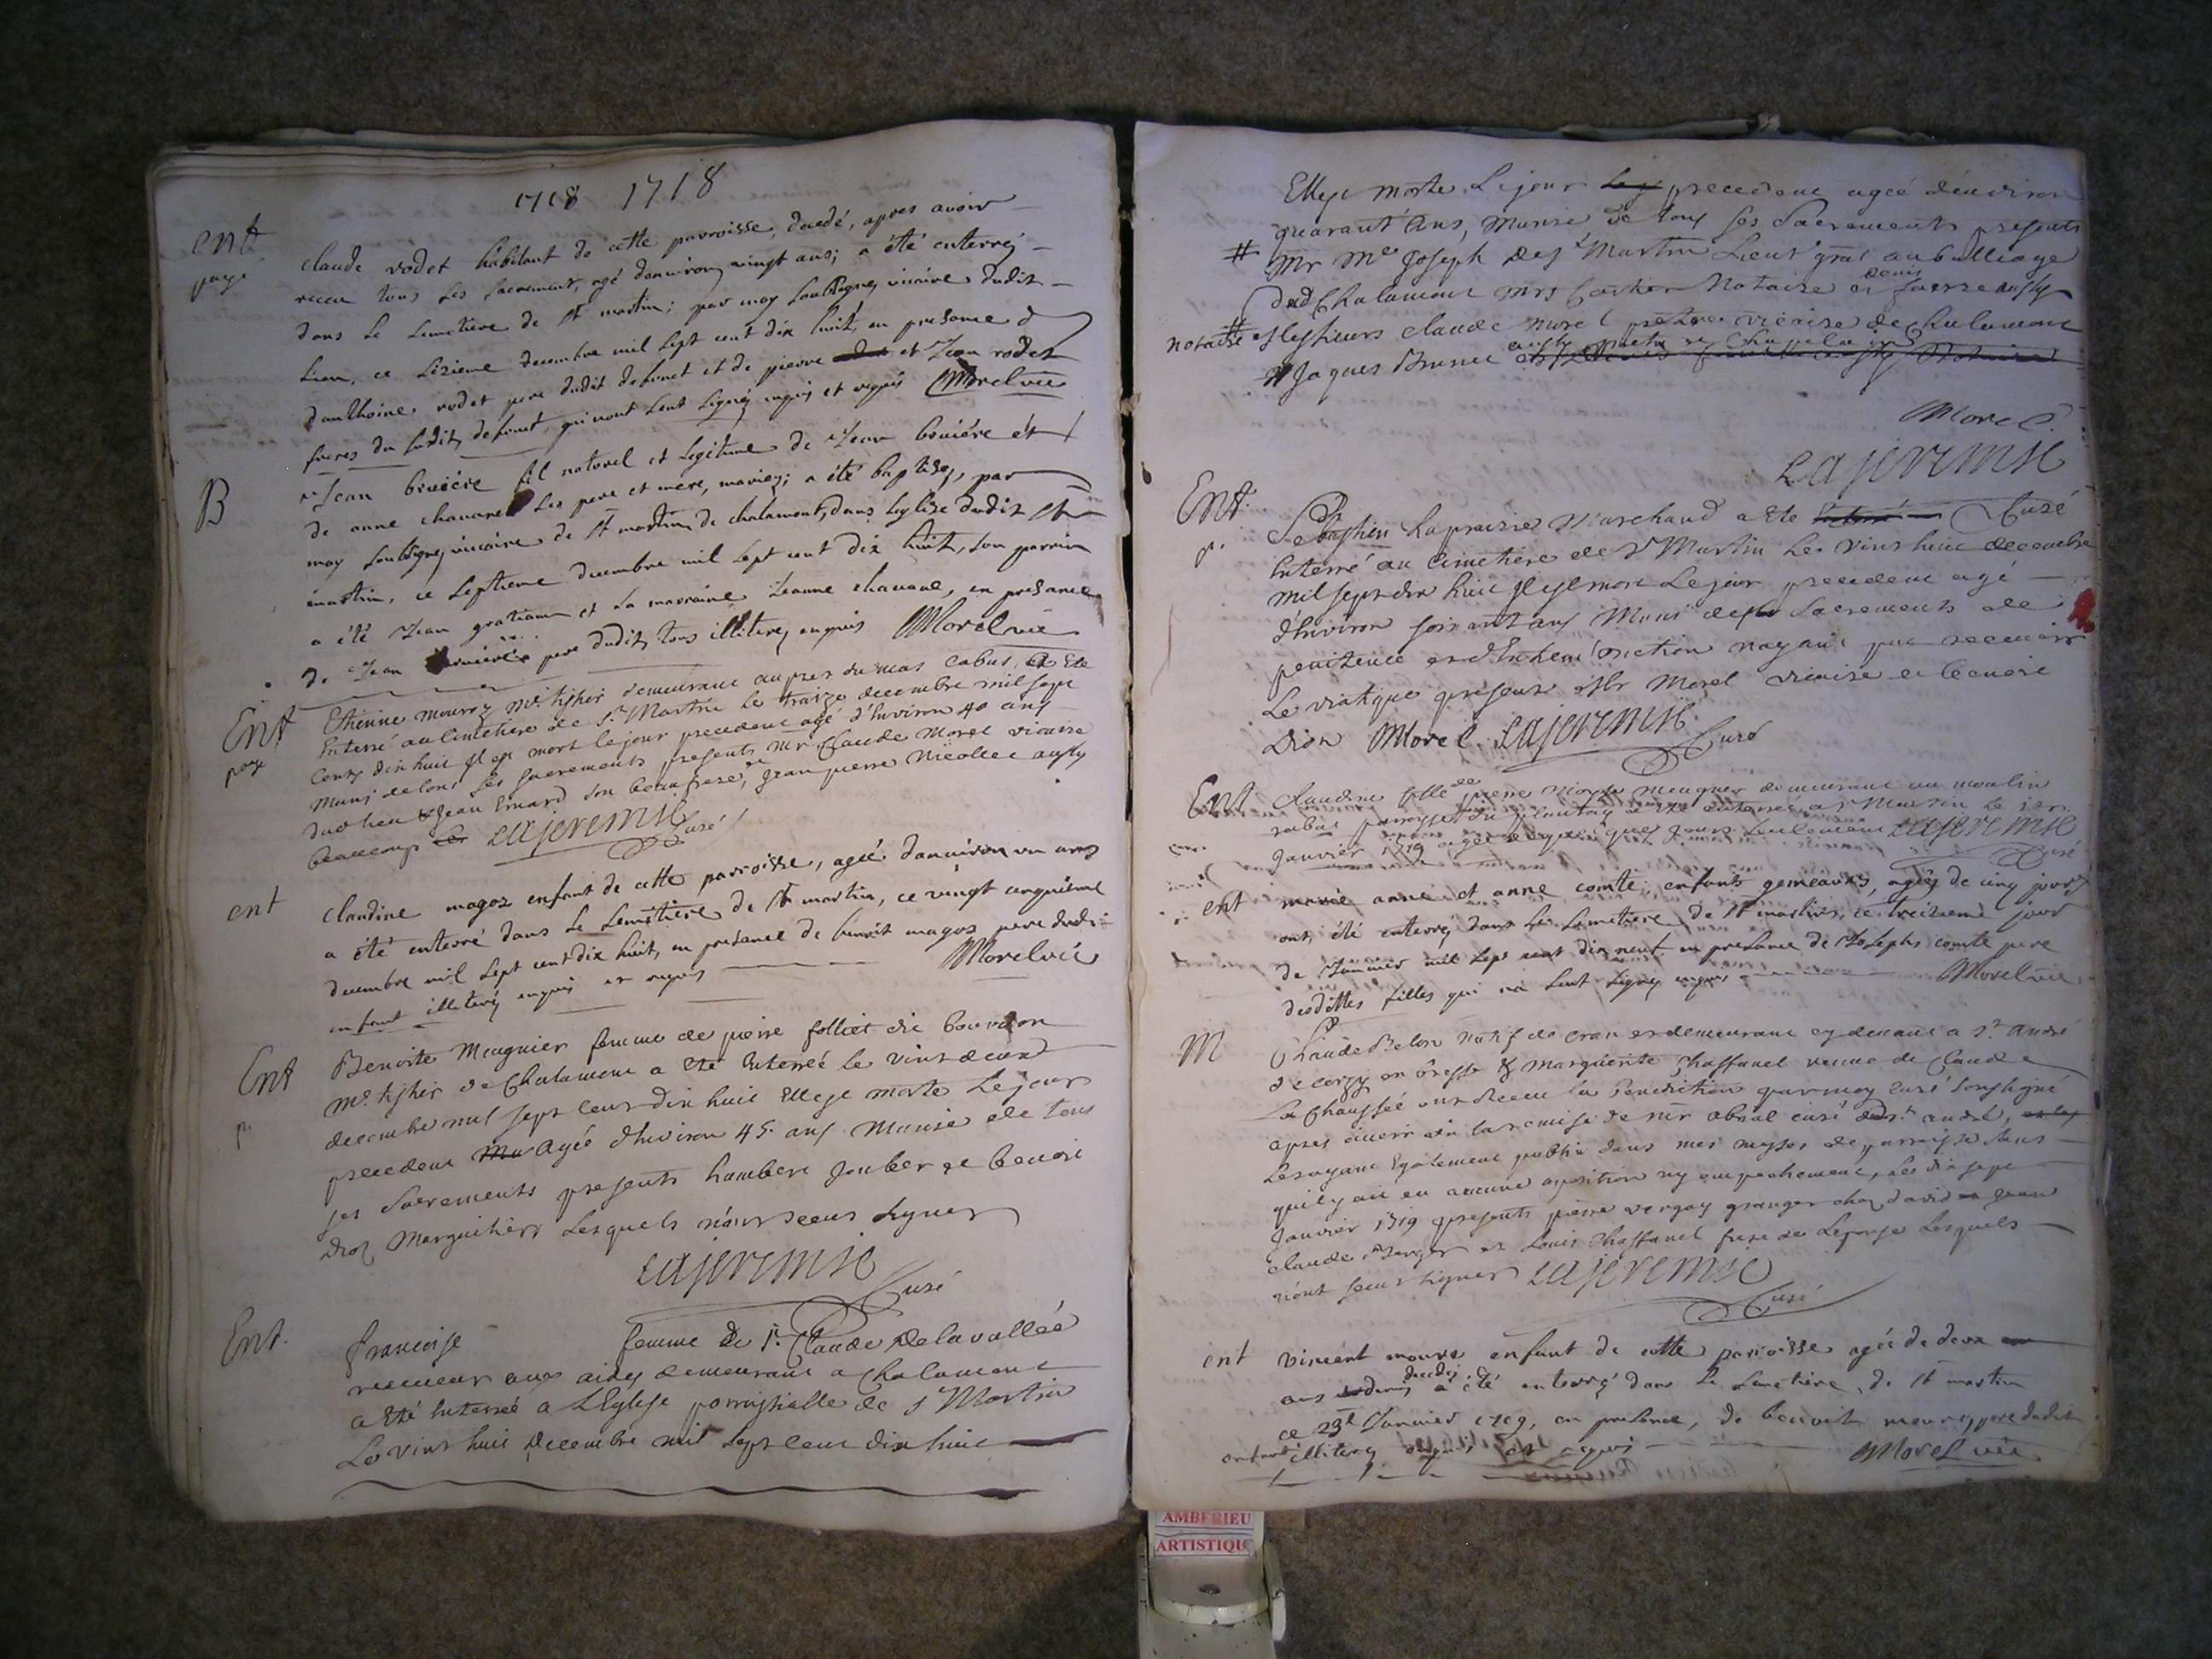 1718 1718
ent
payé
claude rodet habitant de cette parroisse, decedé, apres avoir
receu tous les sacrement, agé danviron vingt ans; a été enterréj
dans le semetiere de st martin; par moy soubsigné vicaire dudit
lieu, ce sizieme decembre mil sept cent dix huit, en presance d
danthoine rodet pere dudit defunct et de pierre et Jean rodet
freres du sudit defunct, qui n'ont seut signéj enquis et requis Morel vic
B
Jean bruiére fil naturel et legitime de Jean bruiére et
de anne chavanel ses pere et mere, mariéz; a été baptiséj, par
moy soubsigné vicaire de st martin de chalamont, dans leglise dudit st
martin, ce septieme decembre mil sept cent dix huit, son parrin
a été Jean gratian et sa marraine Jeanne chavanel, en presance
de Jean bruiére pere dudit, tous illiteréj enquis Morel vic
Ent
paye
Etienne mouroz me tissier demeurant aupres du mas Cabus, a Eté
Enterré au Cimetiere de St Martin le traize decembre mil sept
Cents dix huit Il est mort le jour precedent agé d'Environ 40 ans
Muni de tous ses sacrements presents Mr Claude Morel vicaire
dud lieu & Jean Ernard son beaufrere, & Jean pierre Nicollet aussy
beaucoup Lajeremie Curé
ent
claudine magoz enfant de cette parroisse, agéé danviron un ans
a été enterré dans le semetiere de st martin, ce vingt cinquieme
decembre mil sept cent dix huit, en presance de benoit magoz pere dudi
enfant illiteréj enquis et requis Morel vic
Ent
p.
Benoite Meugnier femme de pierre folliet dit bourdon
me tissier de Chalamont a Eté Enterréé le vint deux
decembre mil sept cent dix huit Elle est morte le jour
precedent Agéé d'Environ 45. ans Munie de tous
ses Sacrements presents humbert Joubert et benoit
Droz Marguilliers Lesquels n'ont sceus signer
Lajeremie
Curé
Ent.
francoise femme de Sr. Claude Delavalléé
receveur aux aides demeurant a Chalamont
a Eté Enterréé a L'Eglise parroissialle de St Martin
Le vint huit Decembre mil sept cent dix huit
Elle est morte Le jour precedent agéé d'environ
quarant'ans, Munie de tous ses Sacrements presents
# Mr Me Joseph de St Martin Lieut gral au balliage
dud Chalamont Mrs Cachet Notaire et denis favrre aussy
notaire # Messieurs claude Morel prestre vicaire de Chalamont
# Jaques Brunet aussy prestre et Chapelain
Morel.
Lajeremie
Curé
Ent.
p.
Sebastien Lapraisie Marchand a Eté
Enterré au Cimetiere de St Martin Le vint huit decembre
mil sept dix huit Il est mort Le jour precedent agé
d'Environ soixant ans Muni des Sacrements de
penitence et d'Extrem'onction n'ayant pu recevoir
Le viatique presents Mr Morel vicaire et benoit
Droz Morel Lajeremie
Curé
Ent
Claudine fille de pierre Meugnier demeurant au moulin
rabat parroisse du plantay a eté enterréé a St Martin le 1er
Janvier 1719 agéé de quelques jours seulement Lajeremie
Curé
ent
marie anne et anne comte, enfants gemeaux, agéj de cinq jours
ont été enterréj dans le semetiere de st martin, ce treizieme jour
de Janvier mil sept cent dix neuf en presance de Joseph comte pere
desdittes filles qui na seut signéj enquis Morel vic
M
Claude Belon Natif de Cran et demeurant cy devant a St. André
de Corzy en bresse & Marguerite Chaffanel veuve de Claude
La Chaussée ont receu la Benediction par moy Curé Soussigné
apres avoir veu la remise de mr abral curé de St. andré,
Les ayant Egalement publié dans mes messes de parroisse sans
qu'il y ait eu aucune oposition ny empechement, le dix sept
Janvier 1719 presents pierre vergay granger chez david Jean
claude Berger et Louis Chaffanel frere de Lepouse Lesquels
n'ont sceus signer Lajeremie
Curé
ent
vincent moure enfant de cette parroisse agéé de deux
ans decedéj a été enterréj dans le semetiere de st martin
ce 23e Janvier 1719, en presance, de benoit moure, pere dudit
enfant illiteréj enquis et requis Morel vic
AMBERIEU
ARTISTIQU